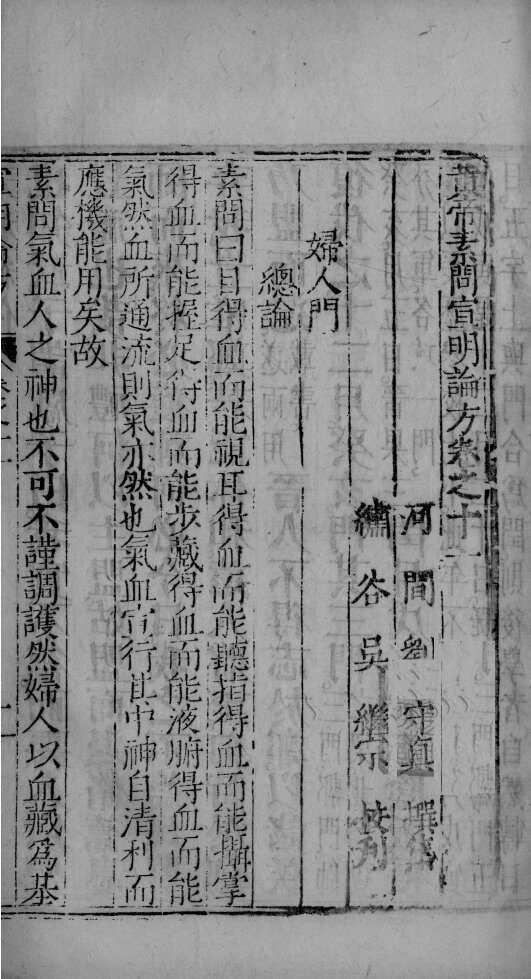 黃帝素問宣明論方卷之十一
河間劉守真撰
繡谷吳繼宗校刋
婦人門
總論
素問曰目得血而能視耳得血而能聽指得血而能攝掌
得血而能握足得血而能步藏得血而能液腑得血而能
氣然血所通流則氣亦然也氣血宣行其中神自清利而
應機能用矣故
素問氣血人之神也不可不謹調護然婦人以血藏爲基